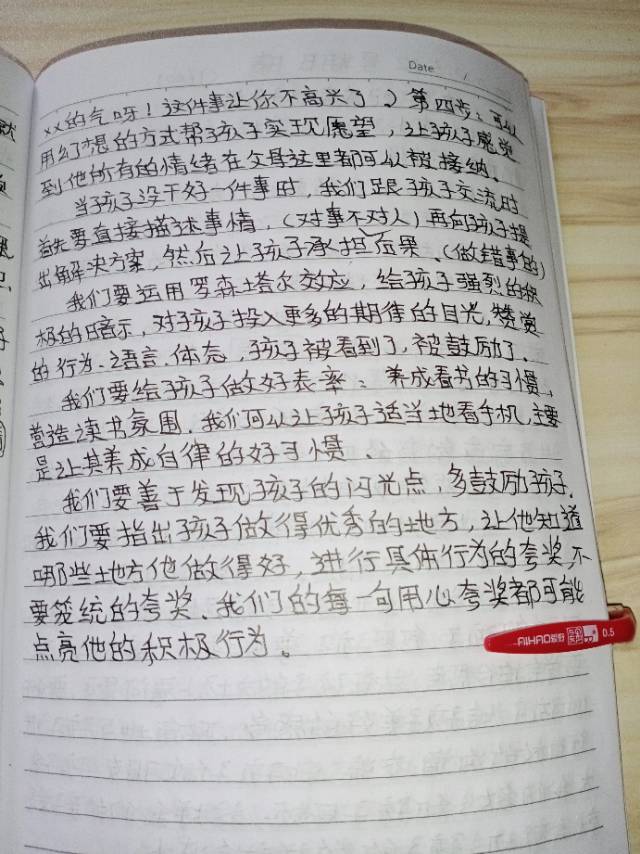 Date /
xx的气呀！这件事让你不高兴了）第四步：可以
用幻想的方式帮孩子实现愿望，让孩子感觉
到他所有的情绪在父母这里都可以被接纳.
当孩子没干好一件事时，我们跟孩子交流时
首先要直接描述事情，（对事不对人）再向孩子提
出解决方案，然后让孩子承担后果.（做错事的）
我们要运用罗森塔尔效应，给孩子强烈的积
极的暗示，对孩子投入更多的期待的目光，赞赏
的行为、语言、体态，孩子被看到了，被鼓励了.
我们要给孩子做好表率：养成看书的习惯，
营造读书氛围.我们可以让孩子适当地看手机，主要
是让其养成自律的好习惯.
我们要善于发现孩子的闪光点，多鼓励孩子.
我们要指出孩子做得优秀的地方，让他知道
哪些地方他做得好，进行具体行为的夸奖，不
要笼统的夸奖.我们的每一句用心夸奖都可能
点亮他的积极行为。
AIHAO爱好 0.5